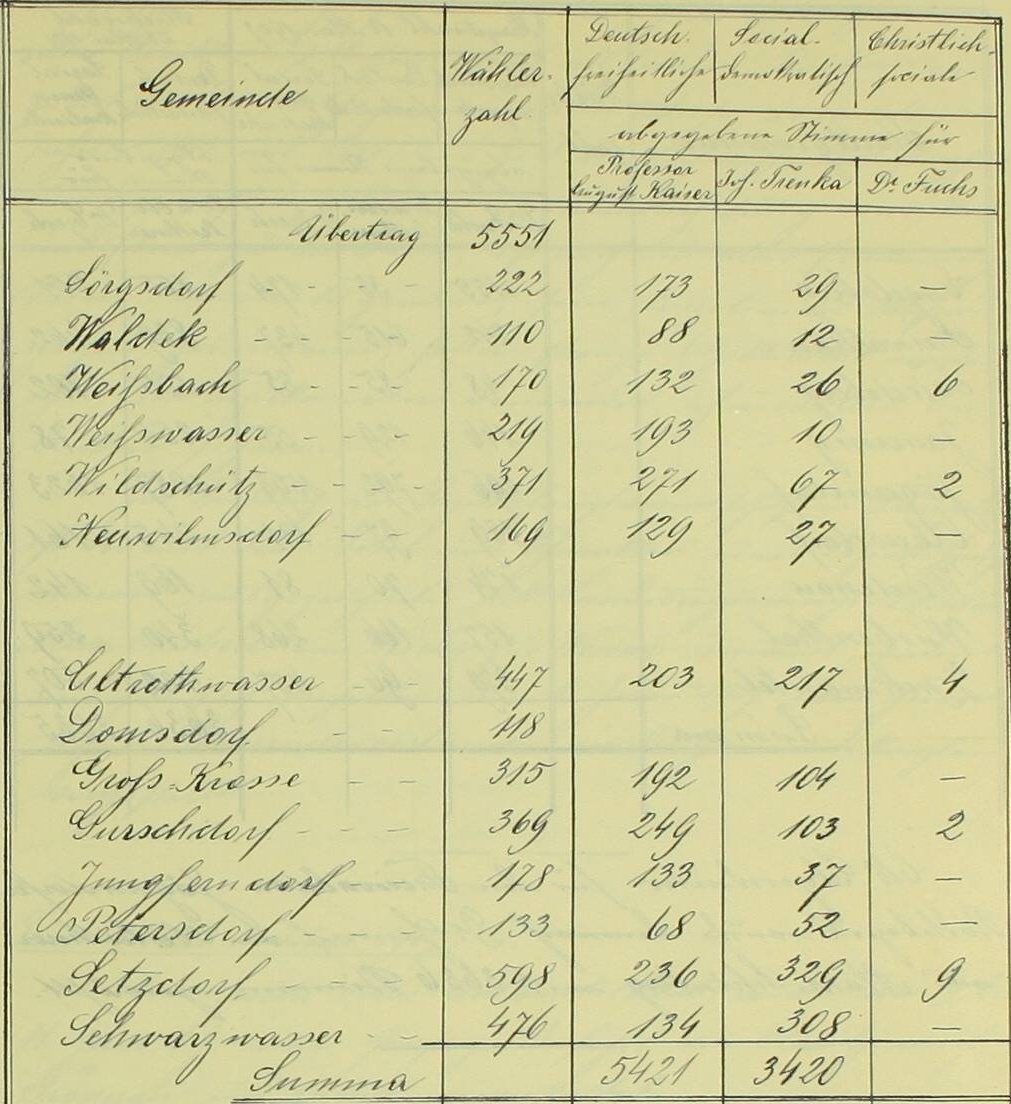 Gemeinde Wähler- Deutsch- Social- Christlich-
zahl freiheitliche demokratisch sociale
abgegebene Stimme für
Professor
August Kaiser Joh. Trenka Dr. Fuchs
Übertrag 5551
Sörgsdorf - - - 222 173 29 —
Waldek - - - 110 88 12 —
Weißbach - - - 170 132 26 6
Weißwasser - - - 219 193 10 —
Wildschütz - - - - 371 271 67 2
Neuwilmsdorf - - 169 129 27 —
Altrothwasser - 447 203 217 4
Domsdorf - - 118
Groß-Krosse - - 315 192 104 —
Gurschdorf - - - 369 249 103 2
Jungferndorf - 178 133 37 —
Petersdorf - - - 133 68 52 —
Setzdorf - - - 598 236 329 9
Schwarzwasser - - 476 134 308 —
Summa 5421 3420